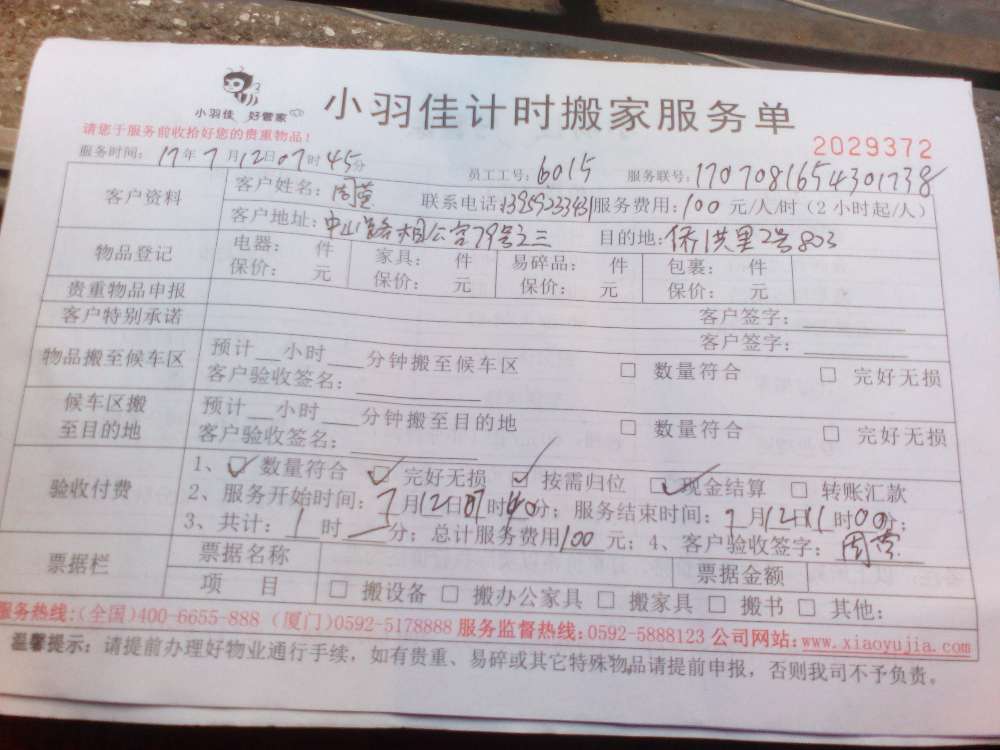 小羽佳 好管家
小羽佳计时搬家服务单
请您于服务前收拾好您的贵重物品！
2029372
服务时间：17年7月12日07时45分 员工工号：6015 服务联号：1707081654301738
客户资料 客户姓名：周萱 联系电话：13959233431 服务费用：100元/人/时（2小时起/人）
客户地址：中山路相公宫79号之三 目的地：侨洪里2号803
物品登记 电器： 件 家具： 件 易碎品： 件 包裹： 件
保价： 元 保价： 元 保价： 元 保价： 元
贵重物品申报 客户签字：
客户特别承诺 客户签字：
物品搬至候车区 预计__小时___分钟搬至候车区 □ 数量符合 □ 完好无损
客户验收签名：
候车区搬至目的地 预计__小时___分钟搬至目的地 □ 数量符合 □ 完好无损
客户验收签名：
验收付费 1、☑ 数量符合 ☑ 完好无损 ☑ 按需归位 ☑ 现金结算 □ 转账汇款
2、服务开始时间：7月12日 时40分；服务结束时间：7月12日11时00分；
3、共计：1时 分；总计服务费用100元；4、客户验收签字：周萱
票据栏 票据名称 票据金额
项 目 □ 搬设备 □ 搬办公家具 □ 搬家具 □ 搬书 □ 其他：
服务热线：(全国)400-6655-888 (厦门)0592-5178888 服务监督热线：0592-5888123 公司网站：www.xiaoyujia.com
温馨提示：请提前办理好物业通行手续，如有贵重、易碎或其它特殊物品请提前申报，否则我司不予负责。